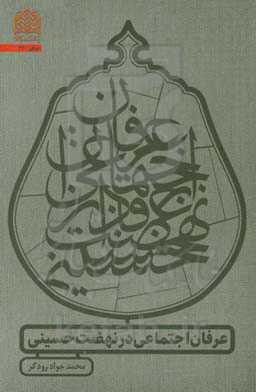 عرفان اجتماعی در نهضت حسینی
عرفان اجتماعی در نهضت حسینی
محمدجواد رودگر